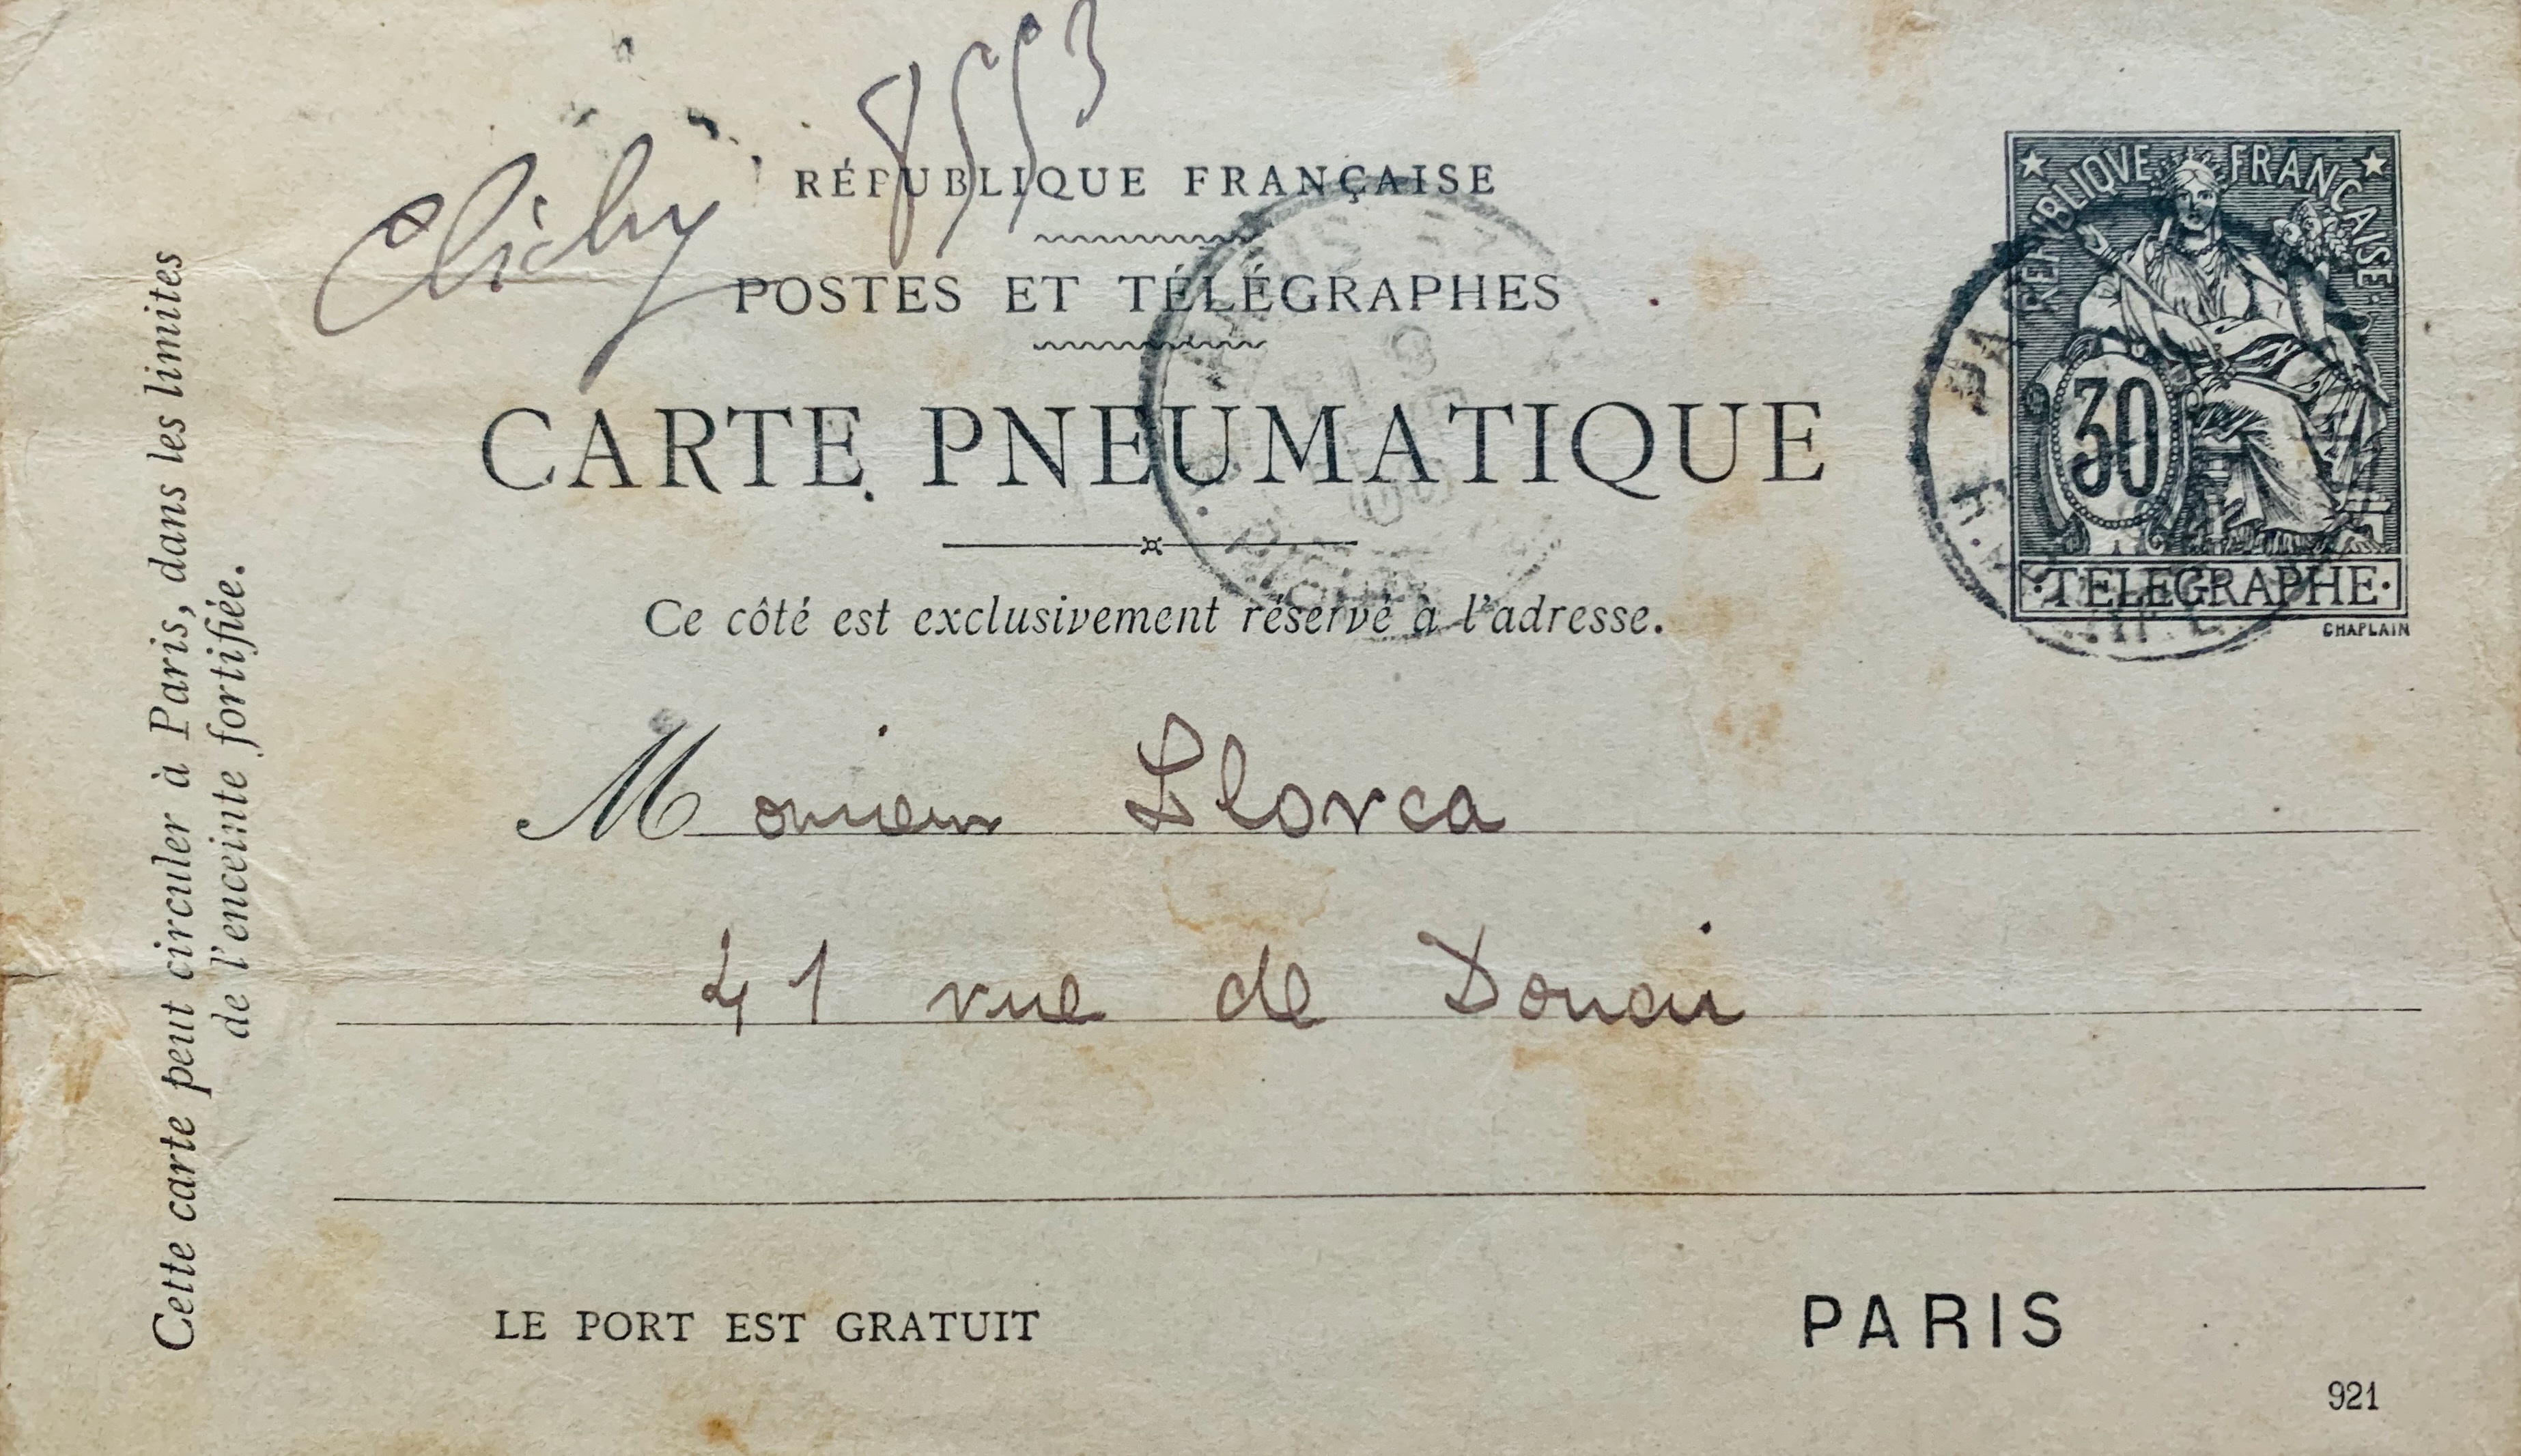 Clichy 8553
RÉPUBLIQUE FRANÇAISE
POSTES ET TÉLÉGRAPHES
CARTE PNEUMATIQUE
Ce côté est exclusivement réservé à l'adresse.
REPVBLIQVE FRANÇAISE
30
TELEGRAPHE
CHAPLAIN
Monsieur Llorca
41 rue de Douai
LE PORT EST GRATUIT
PARIS
921
Cette carte peut circuler à Paris, dans les limites
de l'enceinte fortifiée.